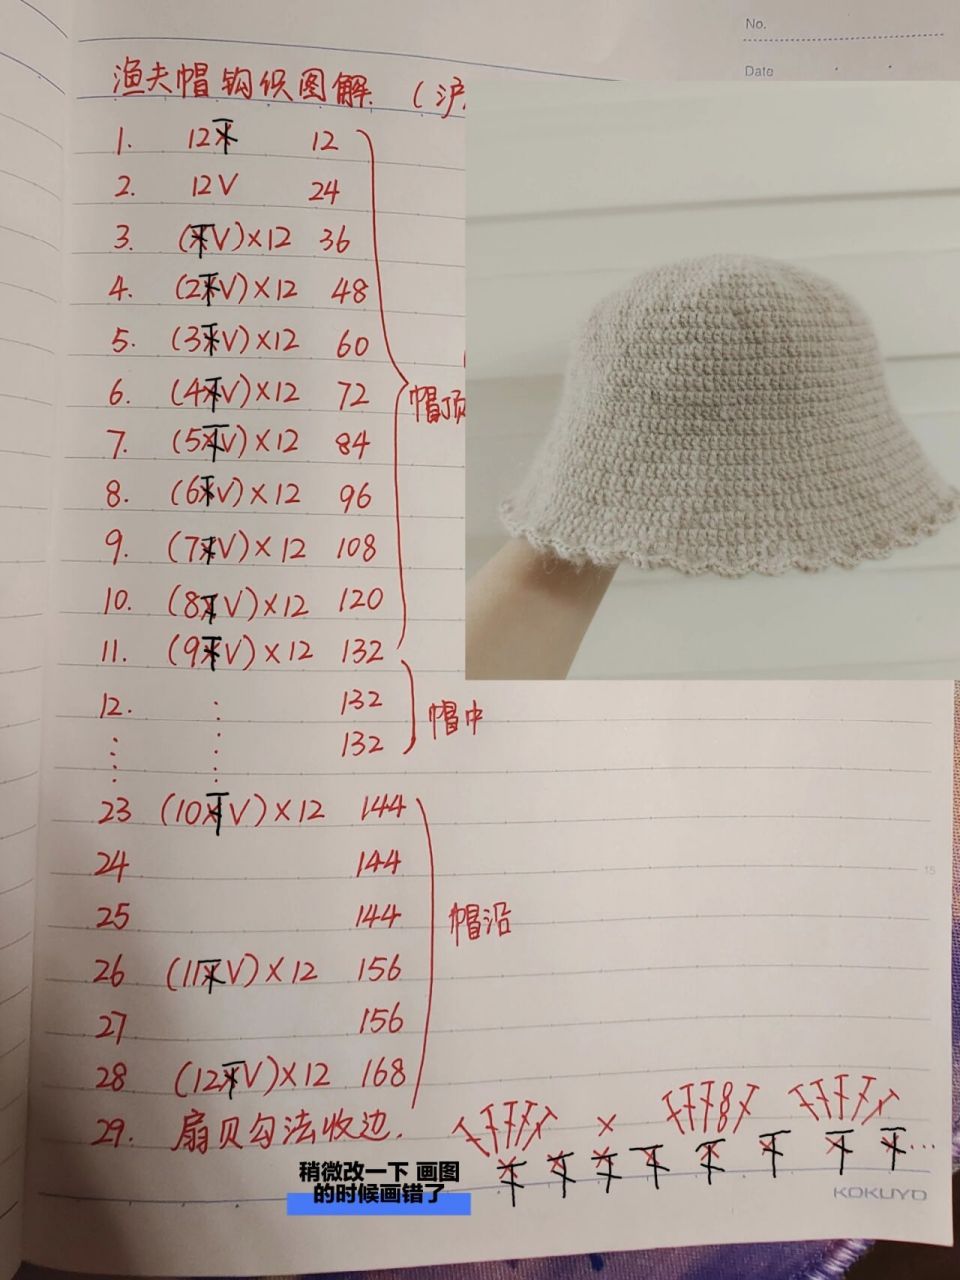 No.
Date
渔夫帽钩织图解 (沪
1. 12T 12
2. 12V 24
3. (TV)×12 36
4. (2TV)×12 48
5. (3TV)×12 60
6. (4TV)×12 72
帽顶
7. (5TV)×12 84
8. (6TV)×12 96
9. (7TV)×12 108
10. (8TV)×12 120
11. (9TV)×12 132
12. ⋮ 132
帽中
⋮ ⋮ 132
23 (10TV)×12 144
24 144
25 144
帽沿
26 (11TV)×12 156
27 156
28 (12TV)×12 168
29. 扇贝勾法收边.
稍微改一下 画图
的时候画错了
15
KOKUYO